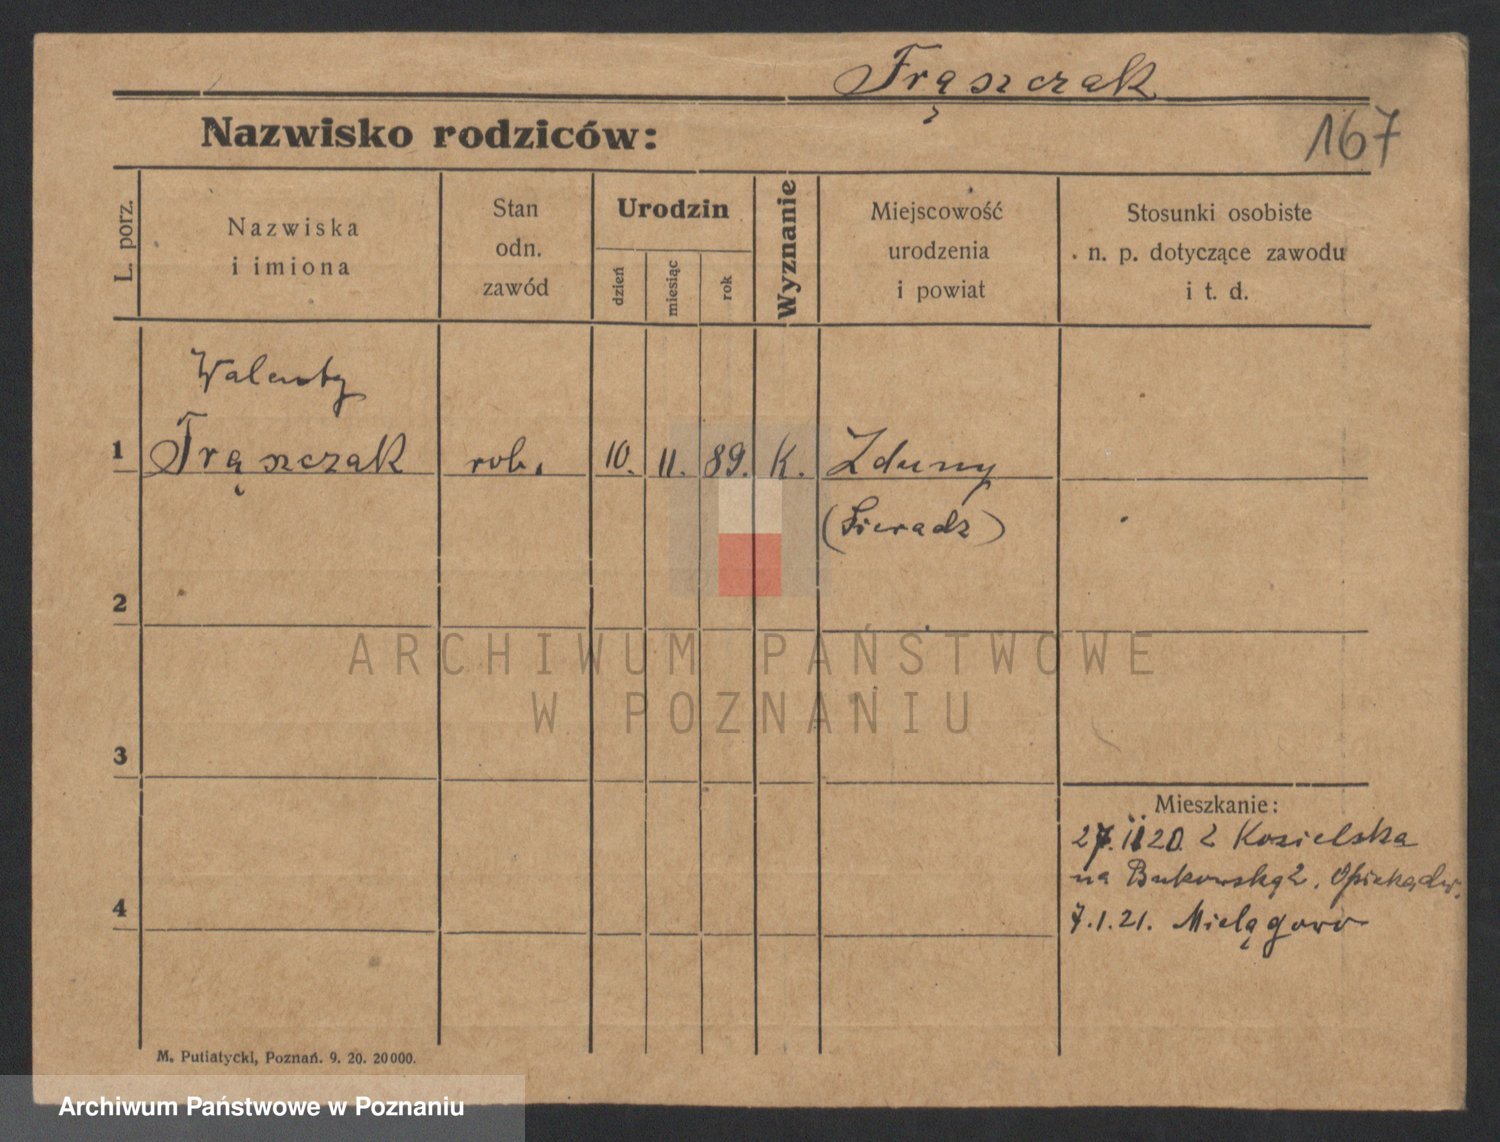 Frąszczak
167
Nazwisko rodziców:
L. porz.
Nazwiska
i imiona
Stan
odn.
zawód
Urodzin
dzień
miesiąc
rok
Wyznanie
Miejscowość
urodzenia
i powiat
Stosunki osobiste
n. p. dotyczące zawodu
i t. d.
Walenty
1 Frąszczak rob. 10. 11. 89. K. Zduny
(Sieradz)
2
3
4
Mieszkanie:
27. 11 20. z Kozielska
na Bukowską 2.
7.1.21. Mielągowo
M. Putiatycki, Poznań. 9. 20. 20000.
ARCHIWUM PAŃSTWOWE
W POZNANIU
Archiwum Państwowe w Poznaniu